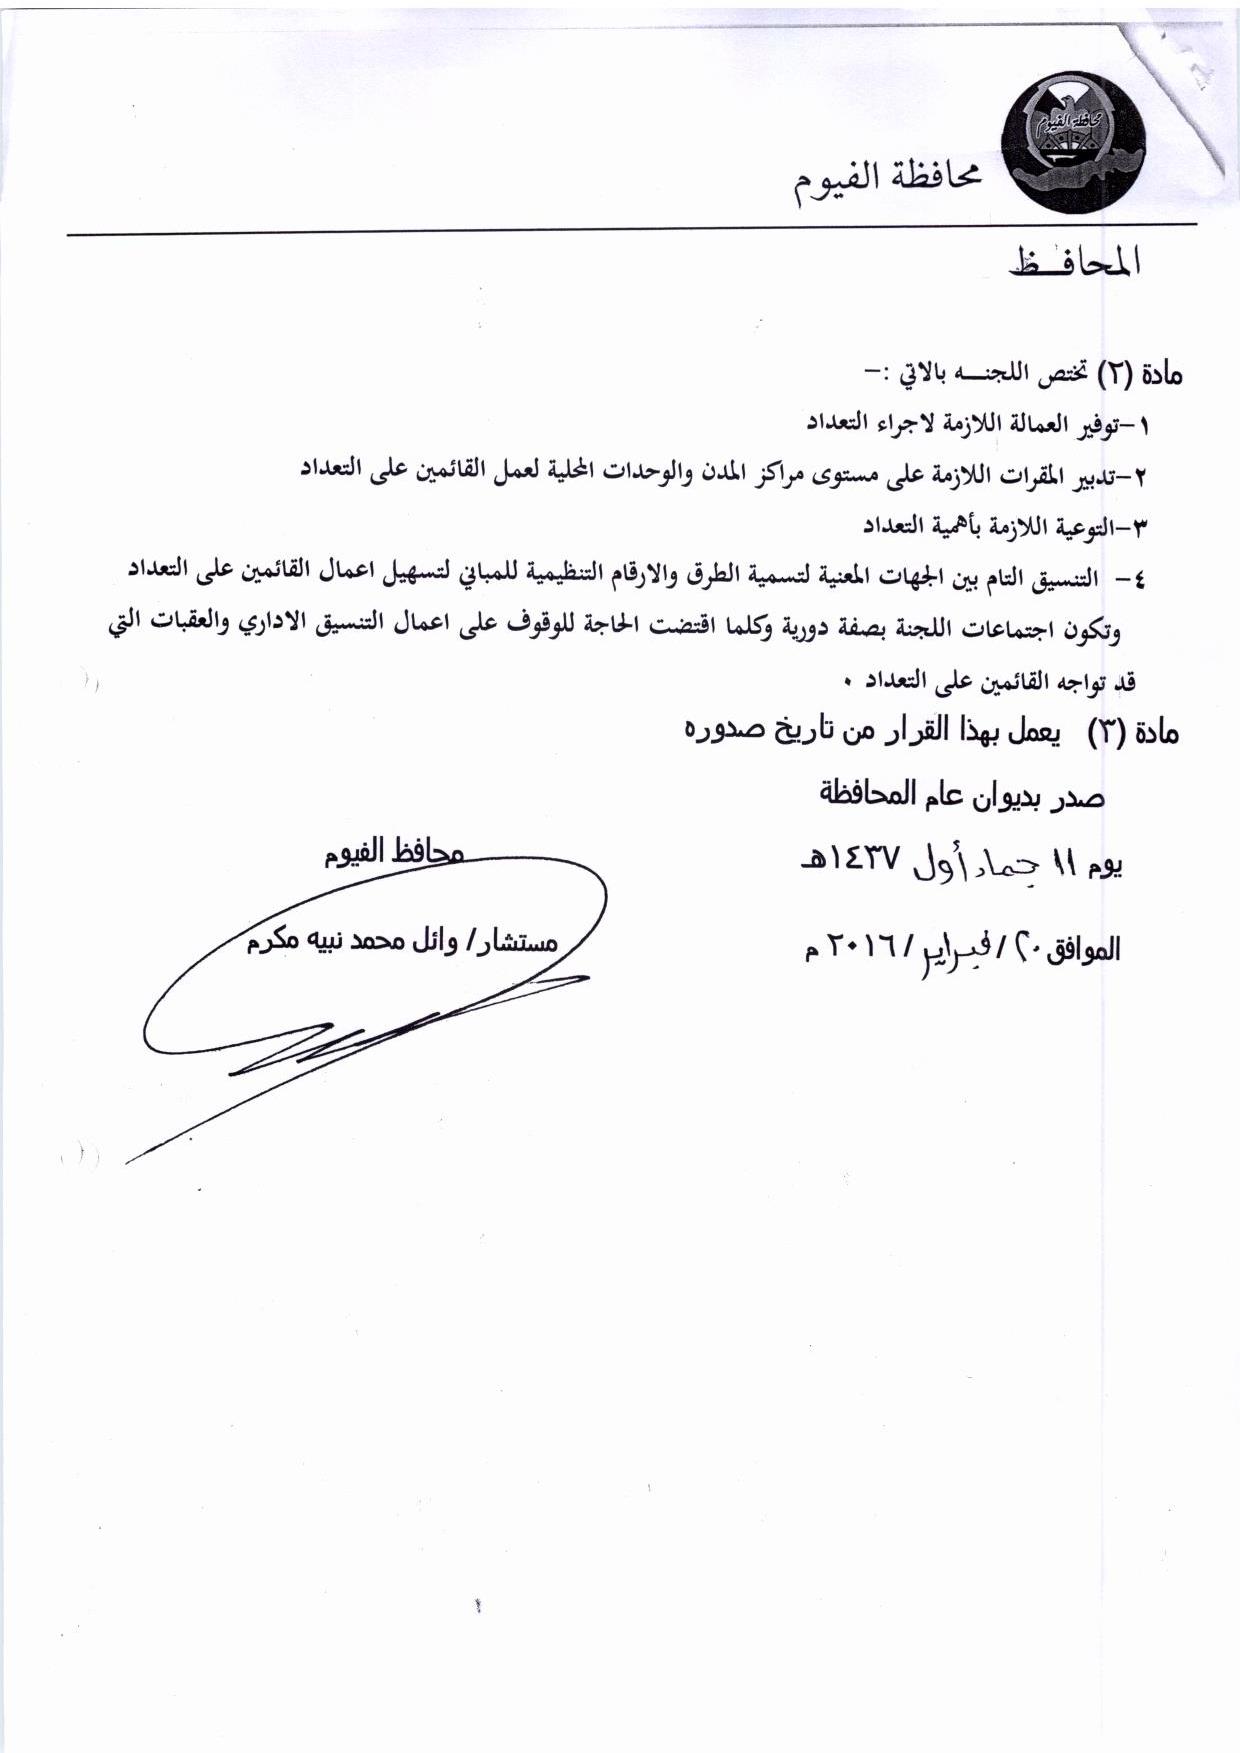 محافظة الفيوم
محافظة الفيوم
المحافــظ
مادة (٢) تختص اللجنــه بالاتي :-
١-توفير العمالة اللازمة لاجراء التعداد
٢-تدبير المقرات اللازمة على مستوى مراكز المدن والوحدات المحلية لعمل القائمين على التعداد
٣-التوعية اللازمة بأهمية التعداد
٤- التنسيق التام بين الجهات المعنية لتسمية الطرق والارقام التنظيمية للمباني لتسهيل اعمال القائمين على التعداد
وتكون اجتماعات اللجنة بصفة دورية وكلما اقتضت الحاجة للوقوف على اعمال التنسيق الاداري والعقبات التي
قد تواجه القائمين على التعداد ٠
مادة (٣) يعمل بهذا القرار من تاريخ صدوره
صدر بديوان عام المحافظة
يوم ١١ جماد أول ١٤٣٧هـ
محافظ الفيوم
الموافق ٢٠ / فبراير / ٢٠١٦ م
مستشار/ وائل محمد نبيه مكرم